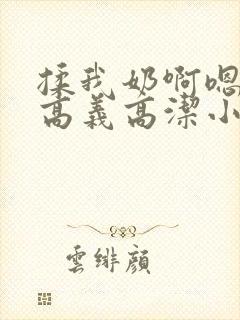 揉我奶啊嗯
高義高潔小
雲緋顏